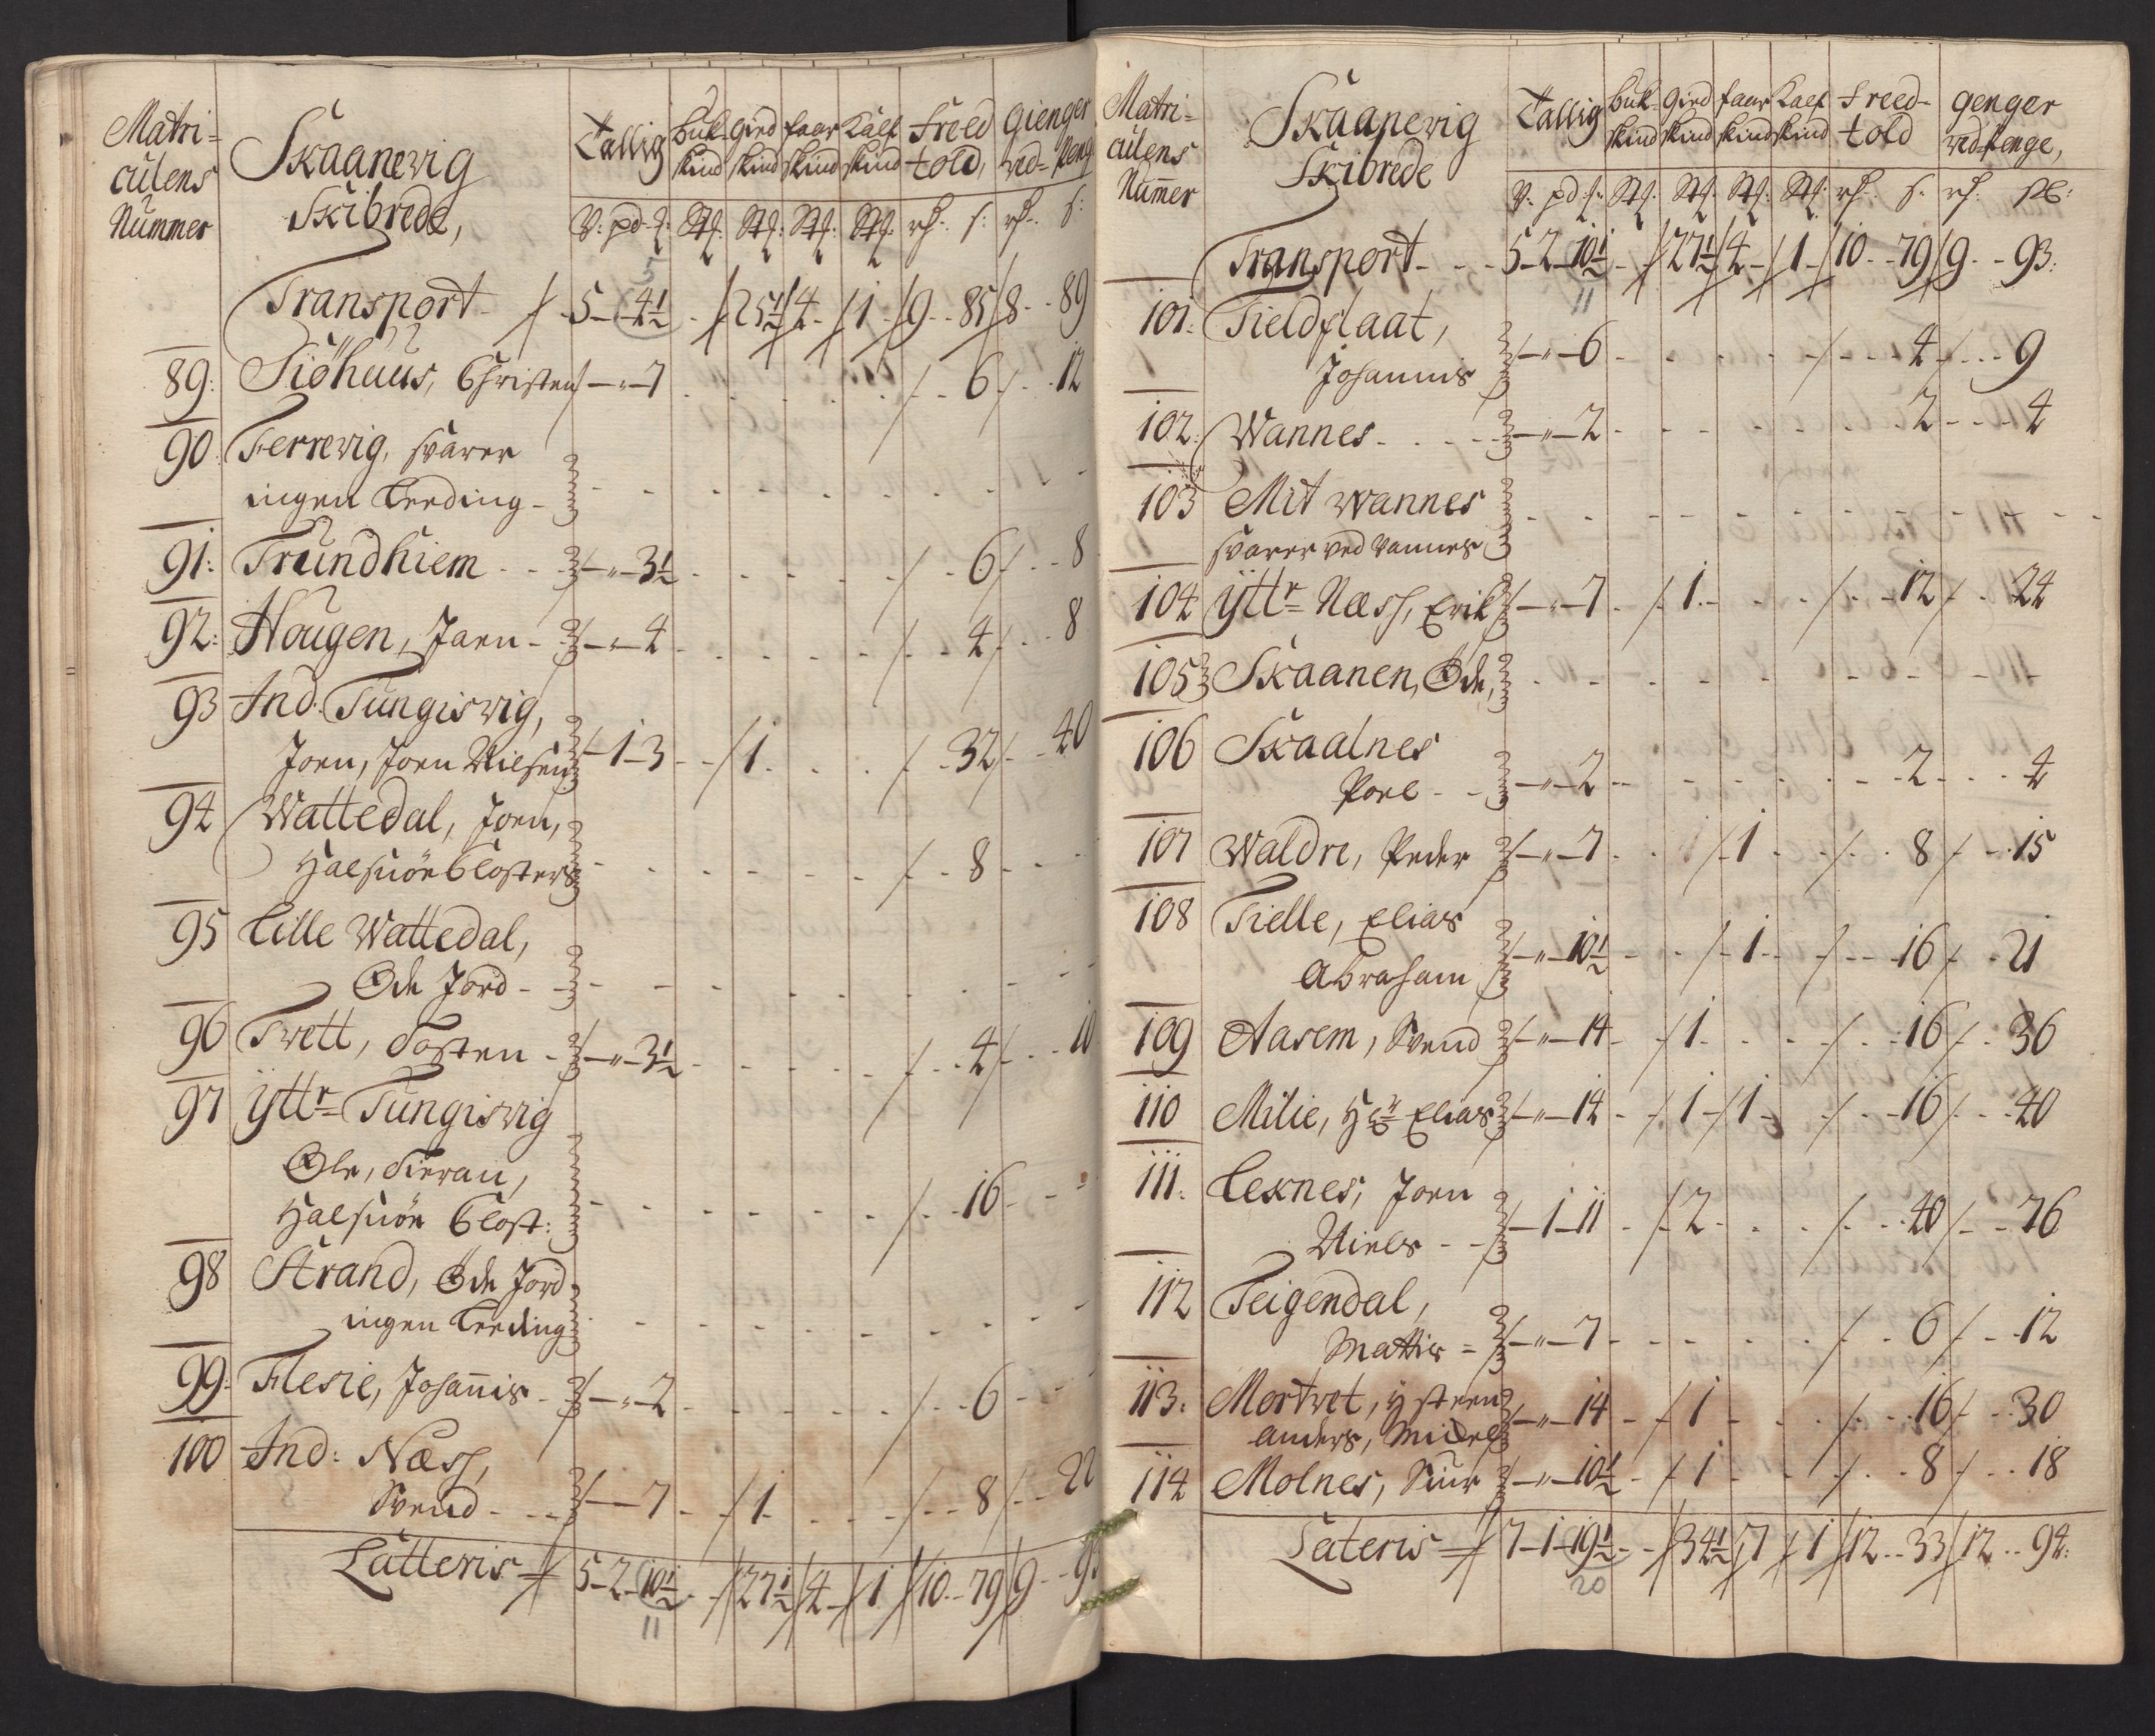 Matri=
culens
Nummer
Skaanevig
Skibrede,
Tallig
buk- skind
gied skind
faar skind
Kalf skind
Freed told,
Gienger ved- Peng
V: pd: Stq: Stq: Stq: Stq: s: s:
Transport 5 - 4½ 25½ 4 1 9 85 8 89
89: Siöhuus, Christen - " - 7 6 12
90 Ferrevig, svarer
ingen Leeding
91: Trundhiem - " - 3½ 6 8
92: Hougen, Jaen - " - 4 4 8
93 Ind: Tungisvig,
Joen, Joen Nielsen 1 - 3 1 32 40
94 Wattedal, Joen,
Halsnöe Closters 8
95 Lille Wattedal,
Øde Jord
96 Tvett, Tosten - " - 3½ 4 10
97 Ÿttr= Tungisvig
Ole,
Halsnöe Clost: 16
98 Strand, Øde Jord
ingen Leeding
99: Flesie, Johannis - " - 2 6
100 Ind: Næss,
Svend - 7 1 8 22
Latteris 5-2-10½ 27½ 4 1 10 79 9 93
11
Matri=
culens
Nummer
Skaanevig
Skibrede
Tallig
buk- skind
gied skind
faar skind
Kalf skind
Freed- told
genger ved Penge,
V: pd: Stq: Stq: Stq: Stq: s:
Transport 5-2-10½ 27½ 4 1 10 79 9 93:
11
101: Fieldflaat,
Johannis - " - 6 4 9
102: Wannes - " - 2 2 4
103 Mit Wannes
svarer ved Vannes
104 Ÿttr= Næss, Erik - " - 7 1 12 24
105 Skaanen, Øde,
106 Skaalnes
Poul - " - 2 2 4
107 Waldre, Peder - " - 7 1 8 15
108 Tielle, Elias
Abraham - " - 10½ 1 16 21
109 Aasem, Svend - " - 14 1 16 36
110 Milie, Hr Elias - " - 14 1 1 16 40
111. Lexnes, Joen
Niels - 1-11 2 40 76
112 Teigendal,
Mattis - " - 7 6 12
113. Mortvet, Ÿsteen
Anders, Mickel - " - 14 1 16 30
114 Molnes, Siur - " - 10½ 1 8 18
Lateris 7-1-19½ 34½ 7 1 12 33 12 94:
20